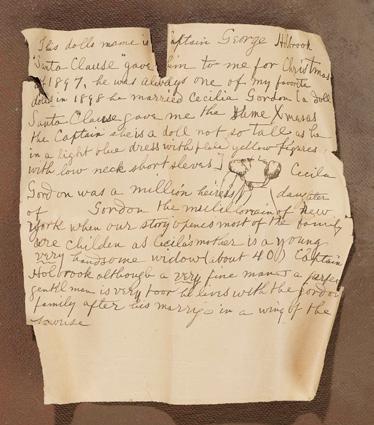 This dolls name is Captain George Holbrook
"Santa Clause" gave him to me for Christmas
of 1897, he was always one of my favorite
dolls in 1898 he married Cecilia Gordon (a doll
Santa Clause gave me the same Xmas as
the Captain she is a doll not so tall as he
in a light blue dress with yellow figures
with low neck short sleves)
Cecilia
Gordon was a million heiress daughter
of Gordon the of New
York when our story opens most of the family
are children as Cecilia's mother is a young
very handsome widow (about 40) Captain
Holbrook although a very fine man & a perfect
gentl man is very poor he lives with the Gordon
family after his marry in a wing of the